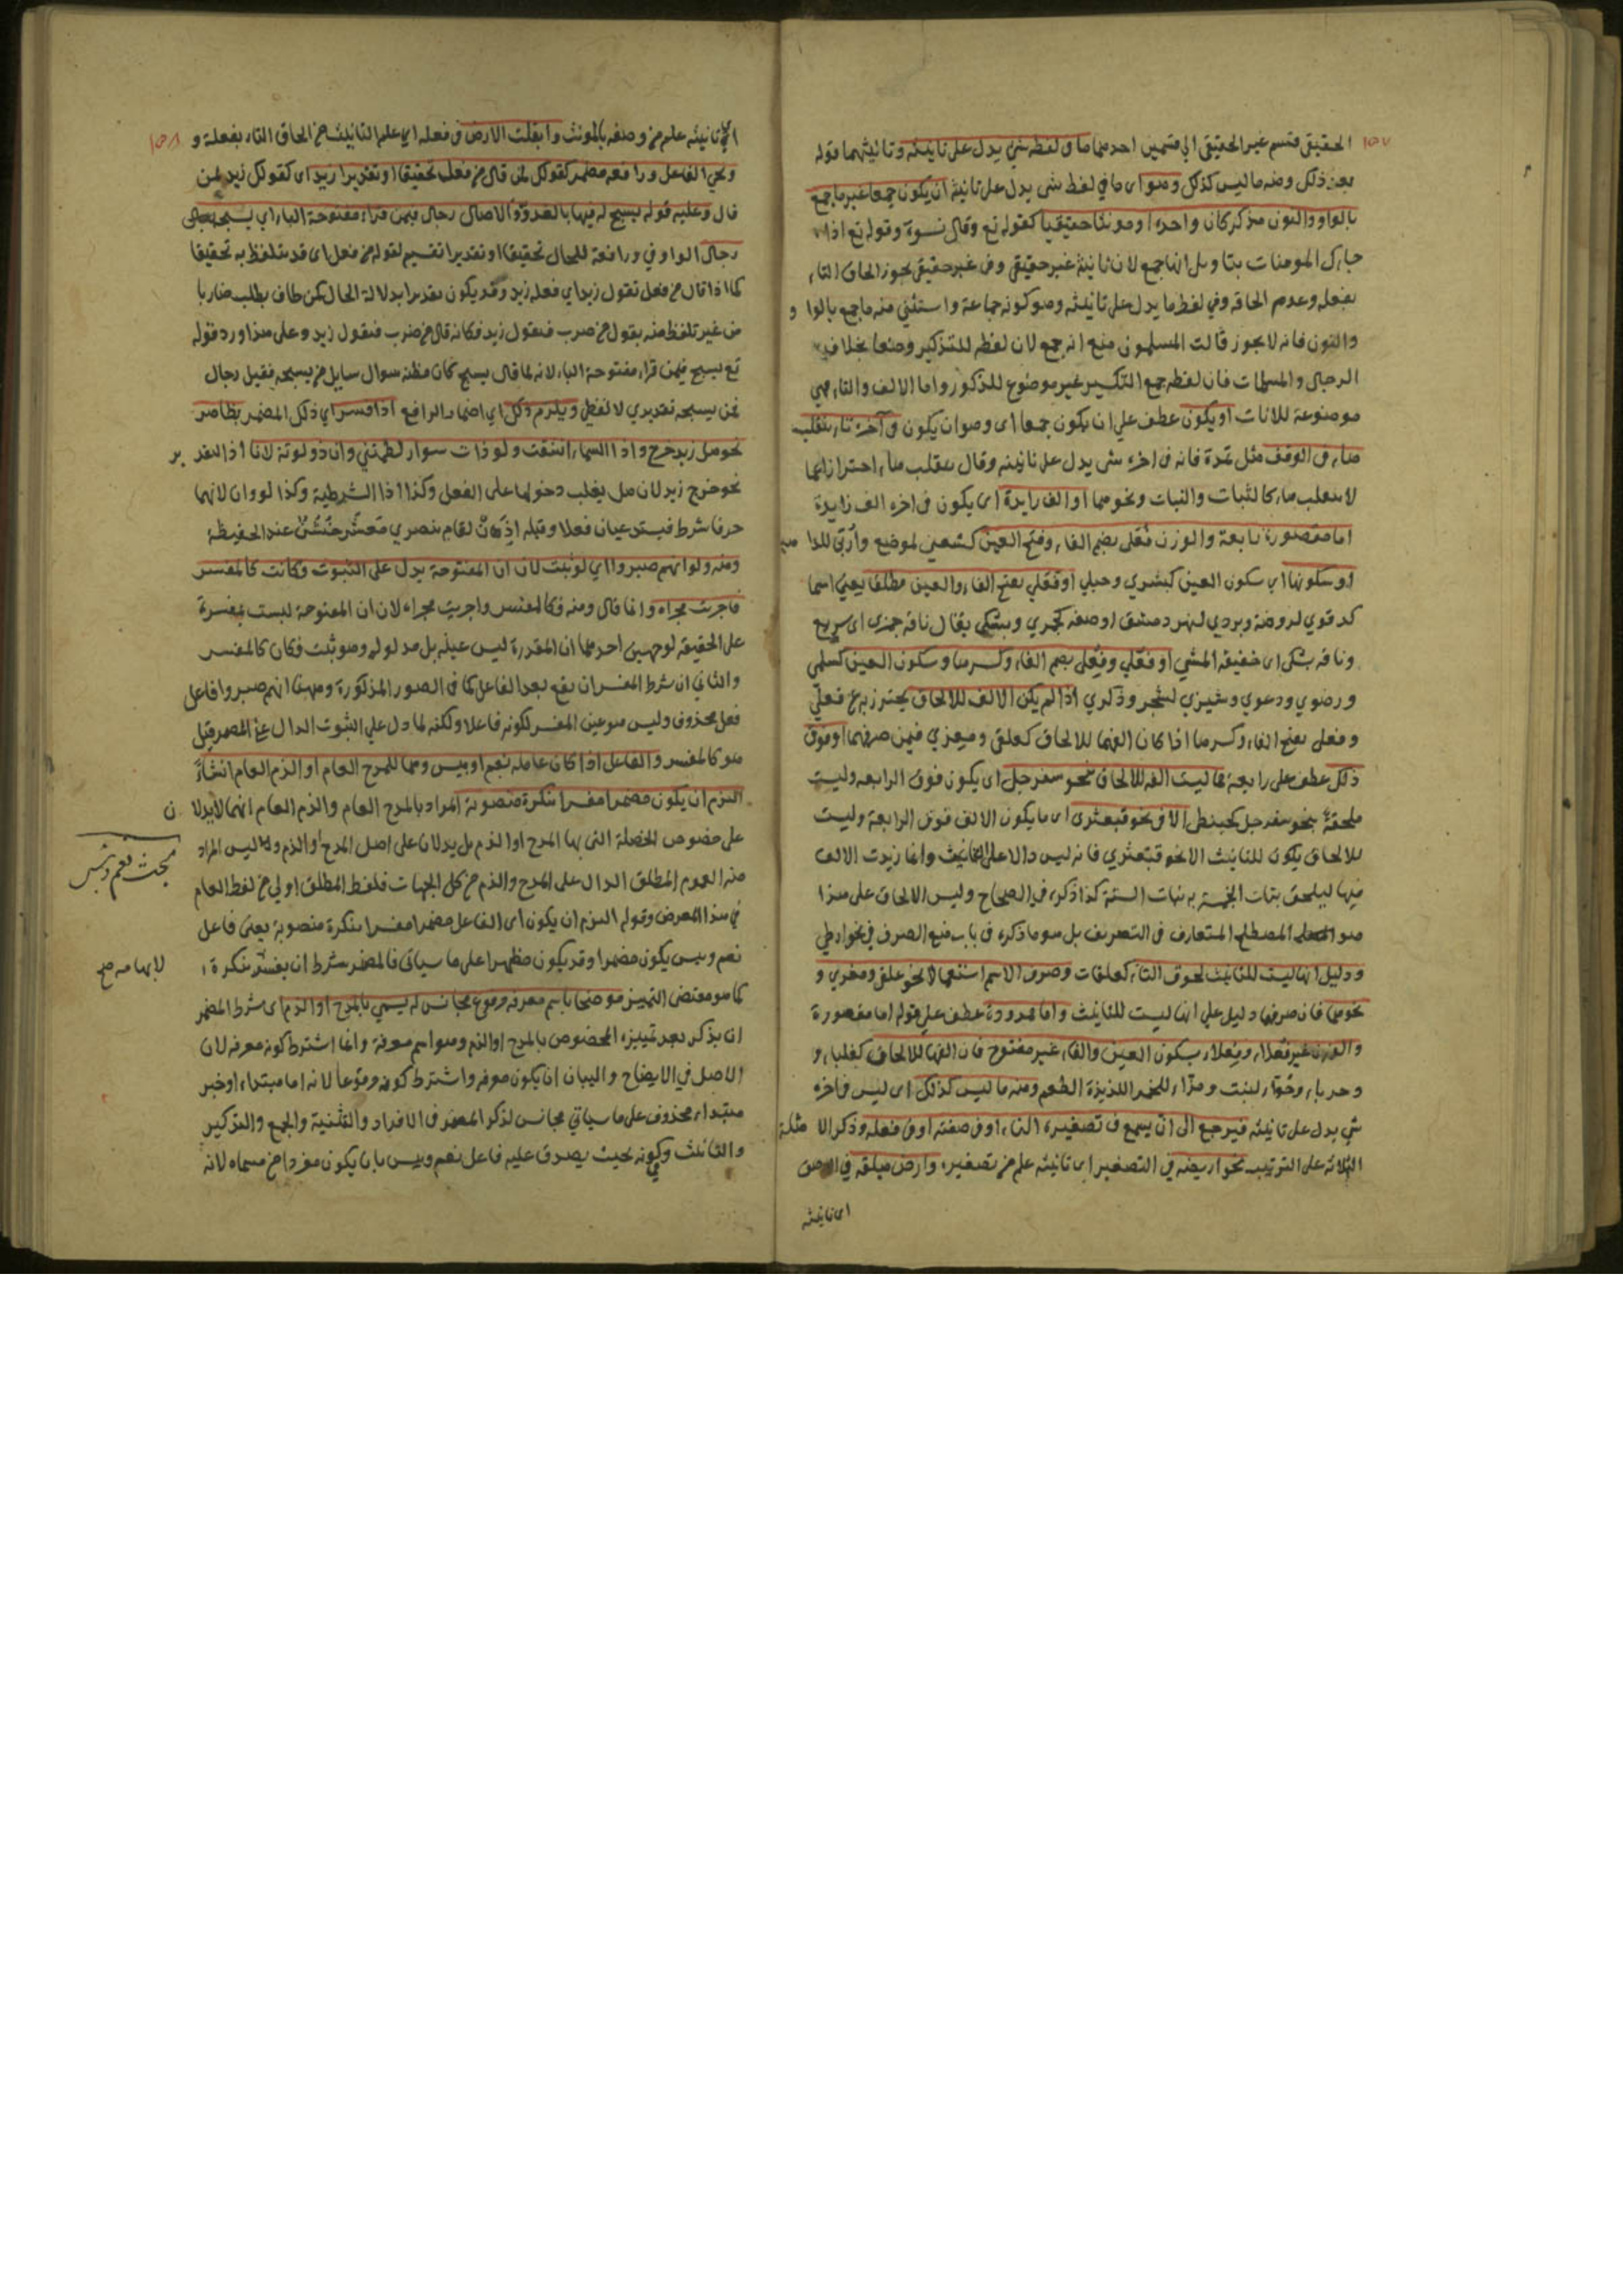 ١٥٧
الحقيقي قسم غير الحقيقي الى قسمين احدهما ما في لفظه شي يدل على تانيثه وتانيثهما قوله
بعد ذلك ومنه ما ليس كذلك وهو اى ما في لفظ شى يدل على تانيثه ان يكون جمعا غير ما جمع
بالواو والنون مذكر كان واحده او مونثا حقيقيا كقوله تع وقال نسوة وقوله تع اذا
جاءك المومنات بتاويل انها جمع لان تانيثه غير حقيقي وفي غير حقيقي يجوز الحاق التاء
بفعله وعدم الحاقه وفي لفظه ما يدل على تانيثه وهو كونه جماعة واستثني منه ما جمع بالواو
والنون فانه لا يجوز قالت المسلمون مع انه جمع لان لفظه للتذكير وضعا بخلاف
الرجال والمسلمات فان لفظ جمع التكسير غير موضوع للذكور واما الالف والتاء فهي
موضوعة للاناث او يكون عطف على ان يكون جمعا اى وهو ان يكون في آخره تاء ينقلب
هاء في الوقف مثل تمرة فانه في اخره شى يدل على تانيثه وقال ينقلب هاء احترازا عما
لا ينقلب هاء كالثبات والنبات ونحوهما او الف زايدة اى يكون في اخره الف زايدة
اما مقصورة رابعة والوزن فُعَلى بضم الفاء وفتح العين كشعبى لموضع وأرَبَى للداهية
او سكونها اي سكون العين كبشري وحبلي او فَعَلي بفتح الفاء والعين مطلقا يعني اسما
كدقري لروضة وبردي لنهر دمشق او صفة كجمزي وبشكي يقال ناقة جمزى اى سريع
وناقة بشكى اى خفيفة المشي او فَعْلي وفُعْلى بضم الفاء وكسرها وسكون العين كسلمى
ورضوي ودعوي وشيزي لشجر وذكري اذا لم يكن الالف للالحاق يحترز به عن فعلى
وفعلى بفتح الفاء وكسرها اذا كان الفهما للالحاق كعلقى ومعزي فيمن صرفهما او فوق
ذلك عطف على رابعة مما ليست الفه للالحاق نحو سفرجل اى يكون فوق الرابعه وليست
ملحقة بنحو سفرجل كحبنطى الا في نحو قبعثرى اى ما يكون الالف فوق الرابعة وليست
للالحاق يكون للتانيث الا نحو قبعثري فانه ليس دالا على التانيث وانما زيدت الالف
فيها ليلحق بنات الخمسة ببنات الستة كذا ذكره في الصحاح وليس الالحاق على هذا
هو المصطلح المتعارف في التصريف بل هو ما ذكره في باب منع الصرف في نحو ارطي
ودليل انها ليست للتانيث لحوق التاء كعلقات وصرف الاسم استعمالا نحو علقى ومعزي و
نحوهما فان صرفها دليل على انها ليست للتانيث واما ممدودة عطف على قوله اما مقصورة
والوزن غير فُعلاء وفِعلاء بسكون العين والفاء غير مفتوح فان الفهما للالحاق كعلباء و
وحرباء وخُوّاء لنبت ومزّاء للخمر اللذيذة الطعم ومنه ما ليس كذلك اى ليس في اخره
شي يدل على تانيثه فيرجع الى ان يسمع في تصغيره التاء او في صفته او في فعله وذكر الامثلة
الثلاثة على الترتيب نحو اريضة في التصغير اى تانيثه علم من تصغيره وارض مبقلة في الوصف
اى تانيثه
١٥٨
اى تانيثه علم من وصفه بالمونث وابقلت الارض في فعله اي علم التانيث من الحاق التاء بفعله و
ويجي الفاعل ورافعه مضمر كقولك لمن قال من فعل تحقيقا او تقديرا زيد اى كقولك زيد لمن
قال وعليه قوله يسبح له فيها بالغدو والاصال رجال فيمن قراء مفتوحة الباء اي يسبحه
رجال الواو في ورافعه للحال تحقيقا او تقديرا تقسيم لقوله من فعل اى قد يتلفظ به تحقيقا
كما اذا قال من فعل تقول زيد اي فعله زيد وقد يكون تقديرا بدلالة الحال كمن طاف يطلب ضاربا
من غير تلفظ منه بقول من ضرب فتقول زيد فكانه قال من ضرب فتقول زيد وعلى هذا ورد قوله
تع يسبح فيمن قراء مفتوحة الباء لانه لما قال يسبح كان مظنة سوال سايل من يسبحه فقيل رجال
فمن يسبحه تقديري لا لفظي ويلزم ذلك اي اضمار الرافع اذا فسر اي ذلك المضمر بظاهر
نحو هل زيد خرج واذا السماء انشقت ولو ذات سوار لطمتني وان ذو لوثة لانا اذ التقدير
نحو خرج زيد لان هل يغلب دخولها على الفعل وكذا اذا الشرطية وكذا لو وان لانهما
حرفا شرط فيستدعيان فعلا وقبله اذن لقام بنصري معشر خُشُن عند الحفيظة
ومنه ولو انهم صبروا اي لو ثبت لان ان المفتوحة يدل على الثبوت فكانت كالمفسر
فاجريت مجراه وانما قال ومنه فكالمفسر واجريت مجراه لان ان المفتوحة ليست بمفسرة
على الحقيقة لوجهين احدهما ان المقدرة ليس عينه بل مدلوله وهو ثبت فكان كالمفسر
والثاني ان شرط المفسر ان يقع بعد الفاعل كما في الصور المذكورة وههنا انهم صبروا فاعل
فعل محذوف وليس هو عين المفسر لكونه فاعلا ولكنه لما دل علي الثبوت الدال على المضمر قيل
هو كالمفسر والفاعل اذا كان عامله نعم او بيس وهما للمدح العام او الذم العام انشاءً
التزم ان يكون مضمرا مفسرا بنكرة منصوبة المراد بالمدح العام والذم العام انهما لا يدلان
على خصوص الخصلة التى بها المدح او الذم بل يدلان على اصل المدح او الذم و ليس المراد
منه العموم المطلق الدال على المدح والذم من كل الجهات فلفظ المطلق اولي من لفظ العام
في هذا المعرض وقوله التزم ان يكون اى الفاعل مضمرا مفسرا بنكرة منصوبة يعني فاعل
نعم وبيس يكون مضمرا وقد يكون مظهرا على ما سياتي فالمضمر شرط ان يفسر بنكرة
كما هو مقتضى التمييز موضحا باسم معرفة وقوع مجانس له يسمي بالمدح او الذم اى شرط المضمر
ان يذكر بعد تمييزه المخصوص بالمدح او الذم وهو اسم معرفة وانما اشترط كونه معرفه لان
الاصل في الايضاح والبيان ان يكون معرفه واشترط كونه مرفوعا لانه اما مبتداء او خبر
مبتداء محذوف على ما سياتي مجانس لذكر المضمر في الافراد والتثنية والجمع والتذكير
والتانيث وكونه بحيث يصدق عليه فاعل نعم وبيس بان يكون مفردا من مسماه لانه
مبحث نعم وبئس
لابهامه صح